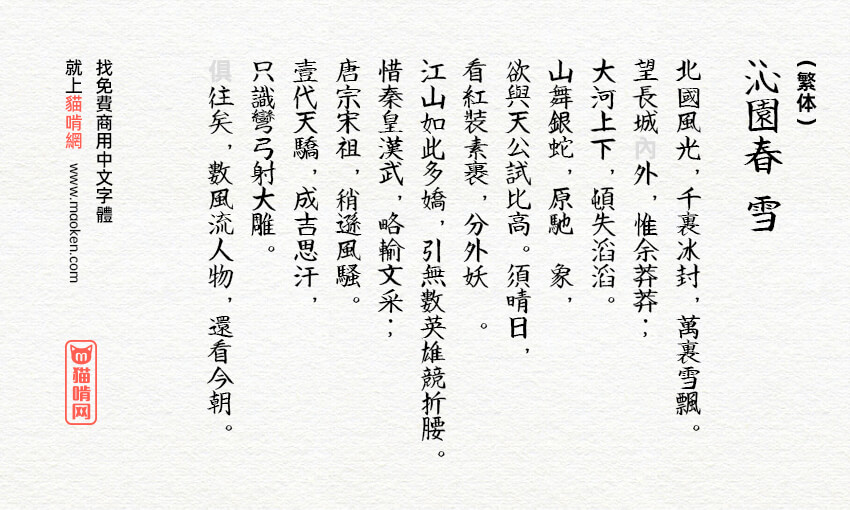 (繁体)
沁園春 雪
北國風光，千裏冰封，萬裏雪飄。
望長城內外，惟余莽莽；
大河上下，頓失滔滔。
山舞銀蛇，原馳 象，
欲與天公試比高。須晴日，
看紅裝素裹，分外妖 。
江山如此多嬌，引無數英雄競折腰。
惜秦皇漢武，略輸文采；
唐宗宋祖，稍遜風騷。
壹代天驕，成吉思汗，
只識彎弓射大雕。
俱往矣，數風流人物，還看今朝。
找免費商用中文字體
就上貓啃網 www.mooken.com
猫啃网